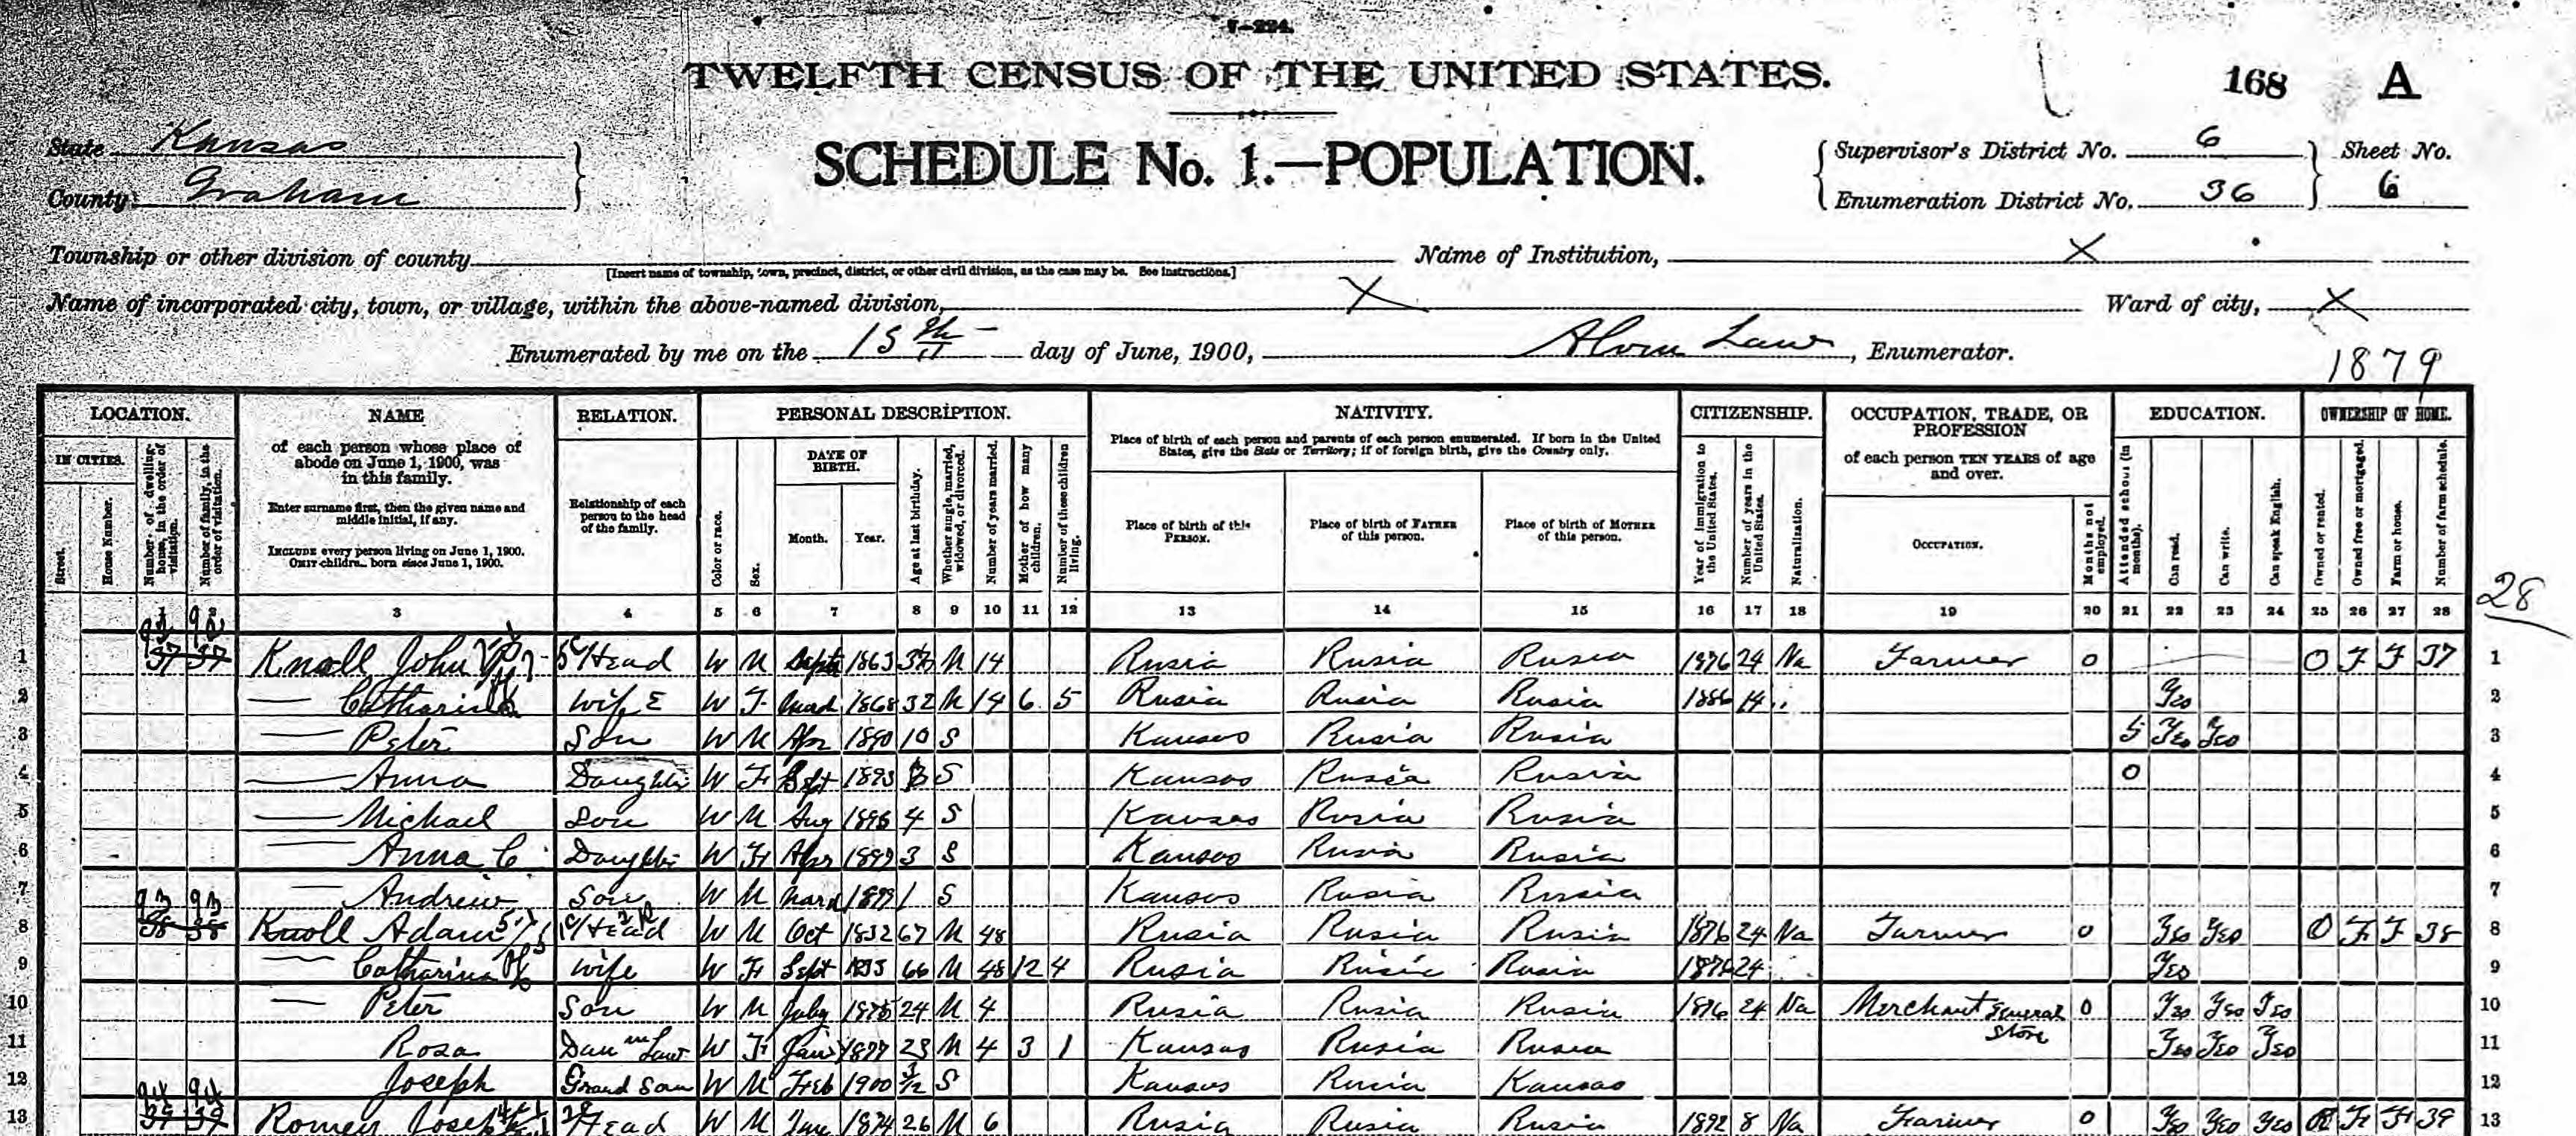 7-224.
TWELFTH CENSUS OF THE UNITED STATES.
168 A
State Kansas
County Graham
SCHEDULE No. 1.—POPULATION.
Supervisor's District No. 6
Enumeration District No. 36
Sheet No.
6
Township or other division of county
[Insert name of township, town, precinct, district, or other civil division, as the case may be. See instructions.]
Name of Institution, X
Name of incorporated city, town, or village, within the above-named division, X
Ward of city, X
Enumerated by me on the 15th day of June, 1900, Law, Enumerator.
1879
LOCATION. NAME RELATION. PERSONAL DESCRIPTION. NATIVITY. CITIZENSHIP. OCCUPATION, TRADE, OR PROFESSION EDUCATION. OWNERSHIP OF HOME.
IN CITIES.
Street.
House Number.
Number of dwelling-house, in the order of visitation.
Number of family, in the order of visitation.
of each person whose place of abode on June 1, 1900, was in this family.
Enter surname first, then the given name and middle initial, if any.
INCLUDE every person living on June 1, 1900.
OMIT children born since June 1, 1900.
Relationship of each person to the head of the family.
Color or race.
Sex.
DATE OF BIRTH.
Month. Year.
Age at last birthday.
Whether single, married, widowed, or divorced.
Number of years married.
Mother of how many children.
Number of these children living.
Place of birth of each person and parents of each person enumerated. If born in the United States, give the State or Territory; if of foreign birth, give the Country only.
Place of birth of this PERSON.
Place of birth of FATHER of this person.
Place of birth of MOTHER of this person.
Year of immigration to the United States.
Number of years in the United States.
Naturalization.
of each person TEN YEARS of age and over.
OCCUPATION.
Months not employed.
Attended school (in months).
Can read.
Can write.
Can speak English.
Owned or rented.
Owned free or mortgaged.
Farm or house.
Number of farm schedule.
28
1 2 3 4 5 6 7 8 9 10 11 12 13 14 15 16 17 18 19 20 21 22 23 24 25 26 27 28
1 37 37 Knoll John Head W M Sept 1863 M 14 Rusia Rusia Rusia 1876 24 Na Farmer 0 O F F 37 1
2 Wife W F 1868 32 M 14 6 5 Rusia Rusia Rusia 1886 14 Yes 2
3 Peter Son W M Apr 1890 10 S Kansas Rusia Rusia 5 Yes Yes 3
4 Anna Daughter W F Sept 1893 S Kansas Rusia Rusia 0 4
5 Michael Son W M Aug 4 S Kansas Rusia Rusia 5
6 Anna C. Daughter W F Apr 1897 3 S Kansas Rusia Rusia 6
7 Andrew Son W M 1899 1 S Kansas Rusia Rusia 7
8 93 93 38 38 Knoll Adam Head W M Oct 1832 67 M 48 Rusia Rusia Rusia 1876 24 Na Farmer 0 Yes Yes O F F 38 8
9 Catharina Wife W F Sept 66 M 48 12 4 Rusia Rusia Rusia 1876 24 Yes 9
10 Peter Son W M July 1875 24 M 4 Rusia Rusia Rusia 1876 24 Na Merchant General Store 0 Yes Yes Yes 10
11 Rosa Dau in Law W F Jan 1877 23 M 4 3 1 Kansas Rusia Rusia Yes Yes Yes 11
12 Joseph Grand Son W M Feb 1900 3/12 S Kansas Rusia Kansas 12
13 94 94 39 39 Joseph Head W M 1874 26 M 6 Rusia Rusia Rusia 1892 8 Na Farmer 0 Yes Yes Yes F F 39 13